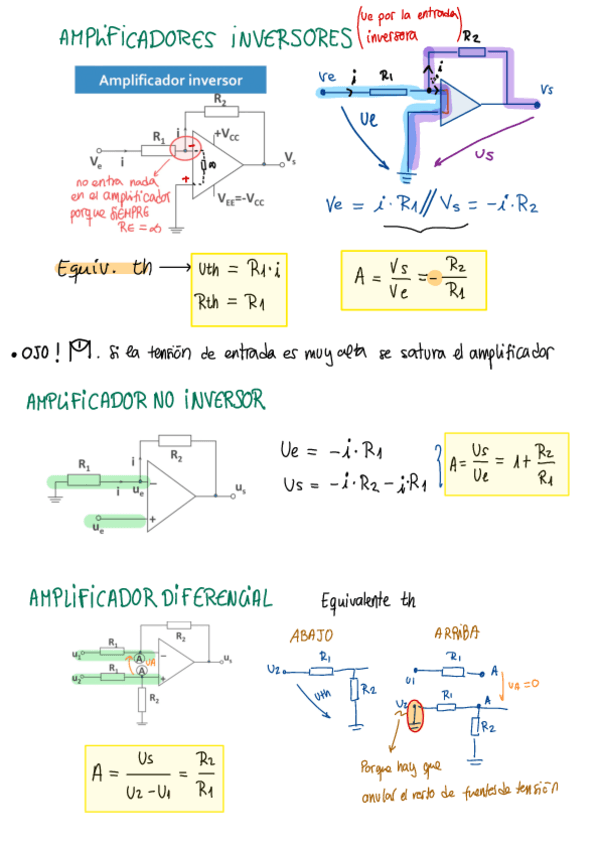 AMPLIFICADORES INVERSORES (Ve por la entrada inversora)
Amplificador inversor
R2
R1
i
+VCC
∞
Ve
i
Vs
VEE=-VCC
no entra nada
en el amplificador
porque SIEMPRE
RE = ∞
R2
Ve
i
R1
i
Vs
Ue
Us
Ve = i·R1 // Vs = -i·R2
Equiv. th → Uth = R1·i
Rth = R1
A = Vs/Ve = - R2/R1
• OJO! . Si la tensión de entrada es muy alta se satura el amplificador
AMPLIFICADOR NO INVERSOR
R2
R1
i
i
ue
us
ue
Ue = -i·R1
Us = -i·R2 - i·R1
A = Us/Ue = 1+ R2/R1
AMPLIFICADOR DIFERENCIAL
Equivalente th
R2
R1
u1
A
UA
us
R1
u2
A
R2
ABAJO
R1
U2
R2
Uth
ARRIBA
R1
U1
A
UA = 0
U2
R1
A
R2
Porque hay que
anular el resto de fuentes de tensión
A = Us/U2-U1 = R2/R1